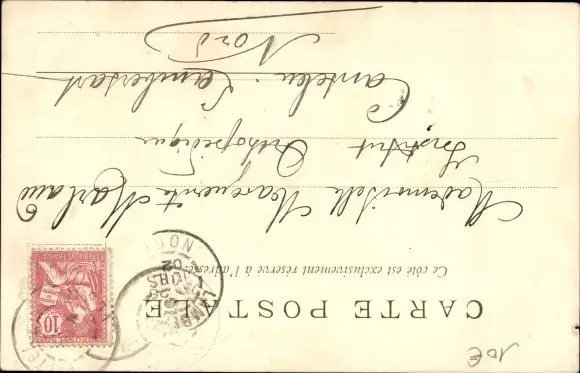 CARTE POSTALE
Ce côté est exclusivement réservé à l'adresse
Mademoiselle Marguerite
Institut Orthopédique
Canteleu - Lambersart
Nord
10
LAMBERSART
NORD
02
10€